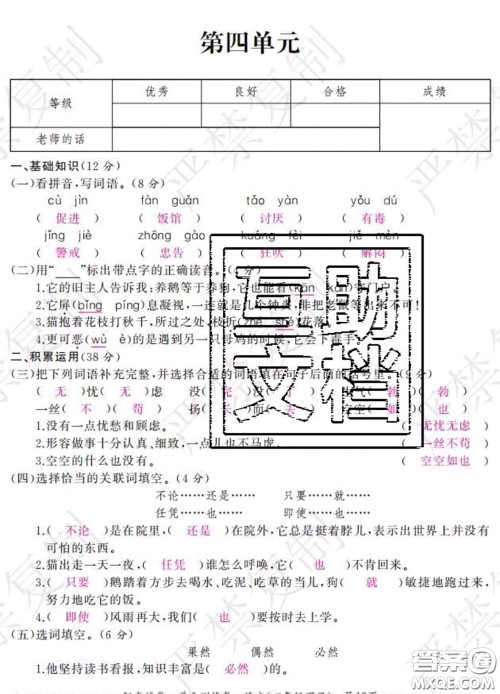 第四单元
等级 优秀 良好 合格 成绩
老师的话
一、基础知识(12 分)
(一)看拼音,写词语。(8 分)
cù jìn fàn guǎn tǎo yàn yǒu dú
( 促进 ) ( 饭馆 ) ( 讨厌 ) ( 有毒 )
jǐng jiè zhōng gào kuáng fèi jiě mèn
( 警戒 ) ( 忠告 ) ( 狂吠 ) ( 解闷 )
(二)用“____”标出带点字的正确读音。(4 分)
1.它的旧主人告诉我:养鹅等于养狗,它也能看(kān kàn)守门户。
2.它屏(bǐng píng)息凝视,一连就是几个钟头,非把老鼠等出来不可!
3.猫抱着花枝打秋千,所过之处,枝折(zhé shé)花落。
4.更可恶(wù è)的是遇到另一只母鸡的时候,它会下毒手,
二、积累运用(38 分)
(三)把下列词语补充完整,并选择合适的词语填在句子后面的括号里。(9 分)
( 无 )忧( 无 )虑 没
( 勃 )
一丝( 不 )( 苟 ) 扬 ( 也 )
1.没有一点忧愁和顾虑。 ( 无忧无虑 )
2.形容做事十分认真、细致,一点儿也不马虎。 ( 一丝不苟 )
3.空空的什么也没有。 ( 空空如也 )
(四)选择恰当的关联词填空。(4 分)
不论……还是…… 只要……就……
任凭……也…… 即使……也……
1.( 不论 )是在院里,( 还是 )在院外,它总是挺着脖儿,表示出世界上并没有
可怕的东西。
2.猫出走一天一夜,( 任凭 )谁怎么呼唤,它( 也 )不肯回来。
3.( 只要 )鹅踏着方步去喝水、吃泥、吃草的当儿,狗( 就 )敏捷地跑过来,
努力地吃它的饭。
4.( 即使 )风雨再大,我们( 也 )要按时去上学。
(五)选词填空。(6 分)
果然 偶然 必然
1.他坚持读书看报,知识丰富是( 必然 )的。
互助
文档
严禁复制
答案圈
MXQE.COM